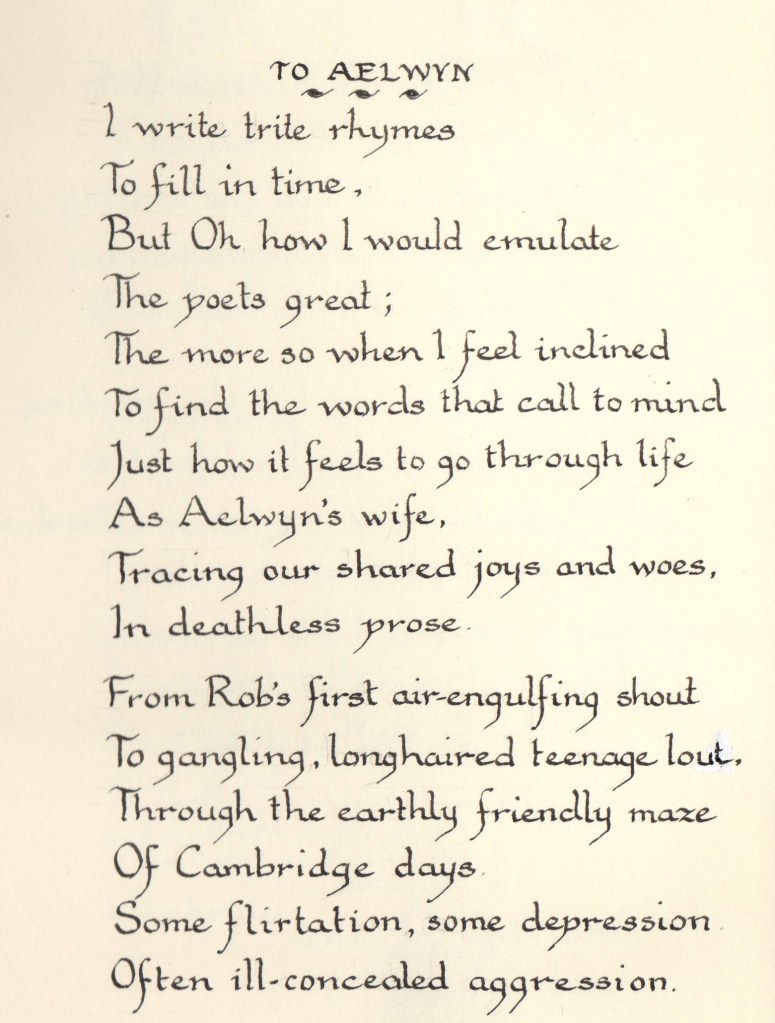 TO AELWYN
I write trite rhymes
To fill in time,
But Oh how I would emulate
The poets great;
The more so when I feel inclined
To find the words that call to mind
Just how it feels to go through life
As Aelwyn's wife,
Tracing our shared joys and woes,
In deathless prose.
From Rob's first air-engulfing shout
To gangling, longhaired teenage lout,
Through the earthly friendly maze
Of Cambridge days.
Some flirtation, some depression
Often ill-concealed aggression.